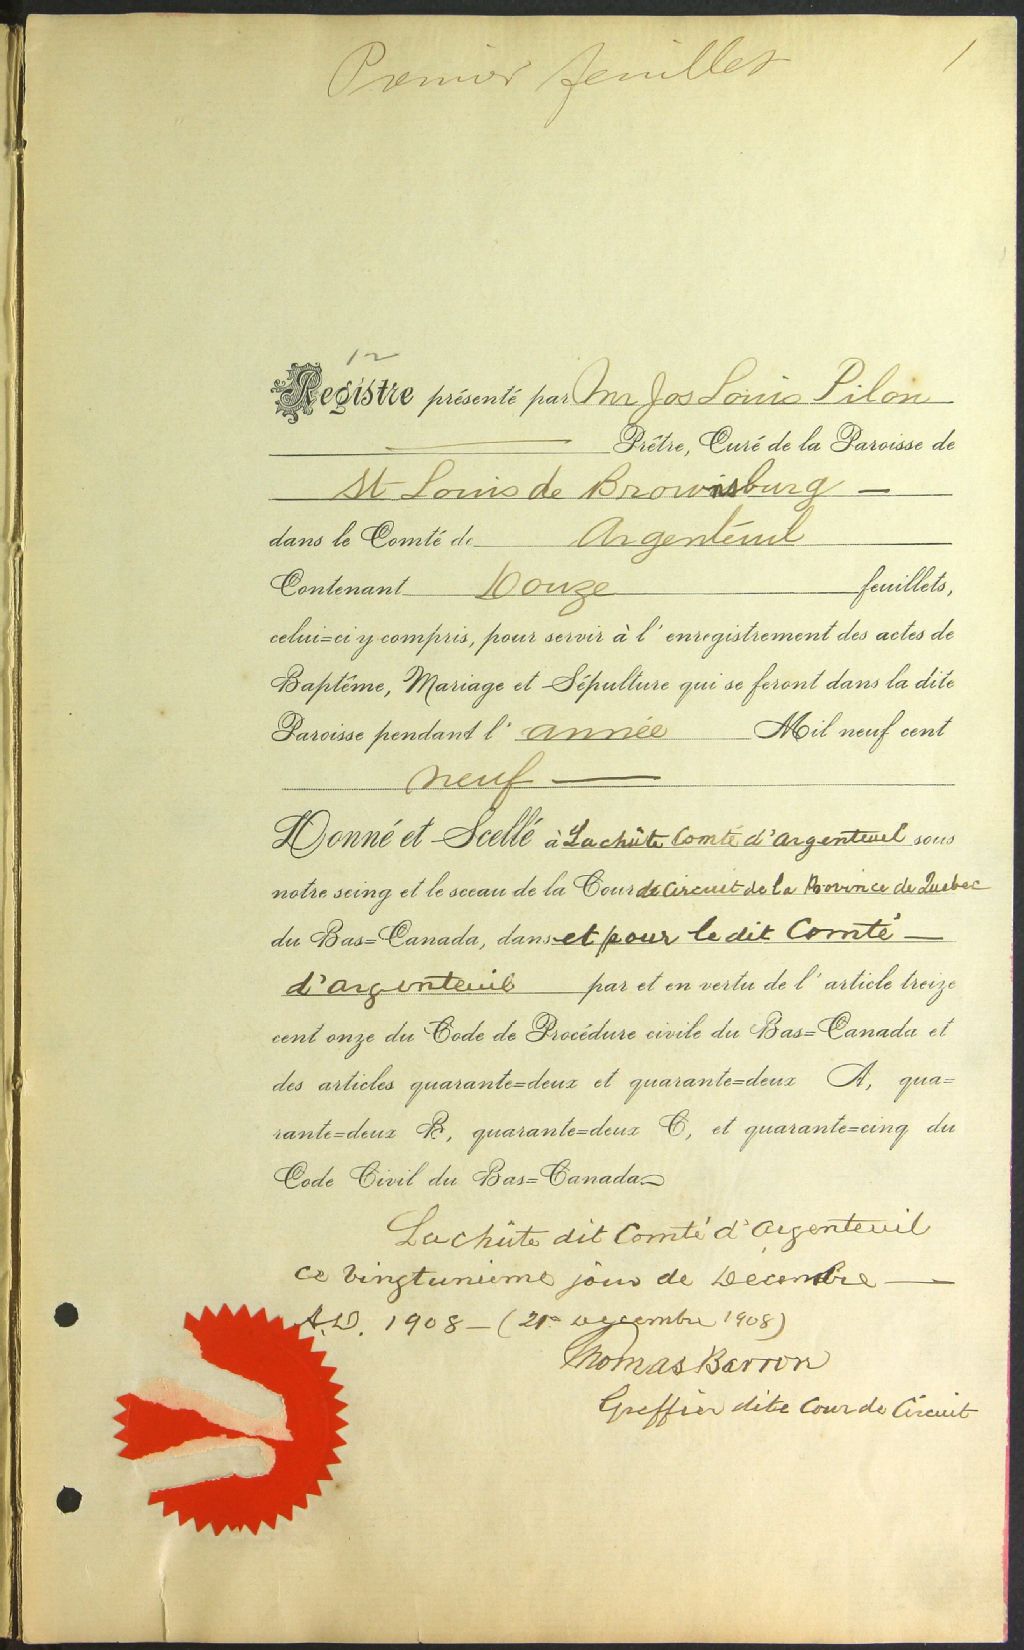 Premier feuillet
1
12
Registre présenté par Mr Jos Louis Pilon
Prêtre, Curé de la Paroisse de
St Louis de Brownsburg
dans le Comté de Argenteuil
Contenant Douze feuillets,
celui=ci y compris, pour servir à l'enregistrement des actes de
Baptême, Mariage et Sépulture qui se feront dans la dite
Paroisse pendant l'année Mil neuf cent
neuf
Donné et Scellé à Lachûte Comté d'Argenteuil sous
notre seing et le sceau de la Cour de Circuit de la Province de Quebec
du Bas=Canada, dans et pour le dit Comté
d'argenteuil par et en vertu de l'article treize
cent onze du Code de Procédure civile du Bas=Canada et
des articles quarante=deux et quarante=deux A, qua=
rante=deux B, quarante=deux C, et quarante=cinq du
Code Civil du Bas=Canada
Lachûte dit Comté d'Argenteuil
ce vingtunième jour de Décembre
A.D. 1908 - (21e decembre 1908)
Thomas Barron
Greffier dite Cour de Circuit